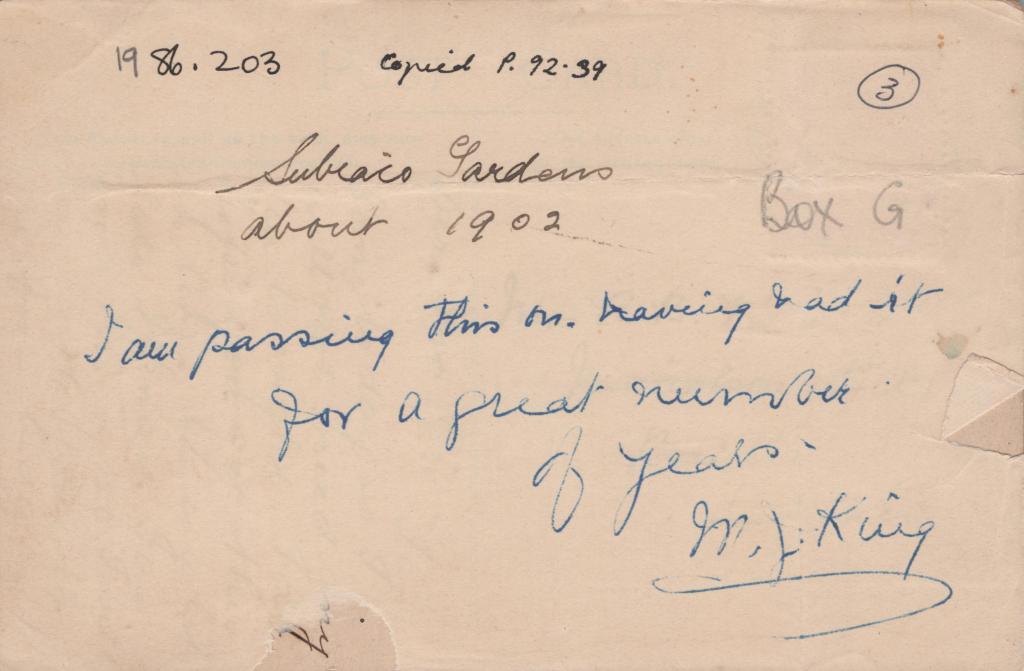 1986.203 Copied P. 92.39
3
Subiaco Gardens
about 1902
Box G
I am passing this on. having had it
for a great number
of years.
M. J. King